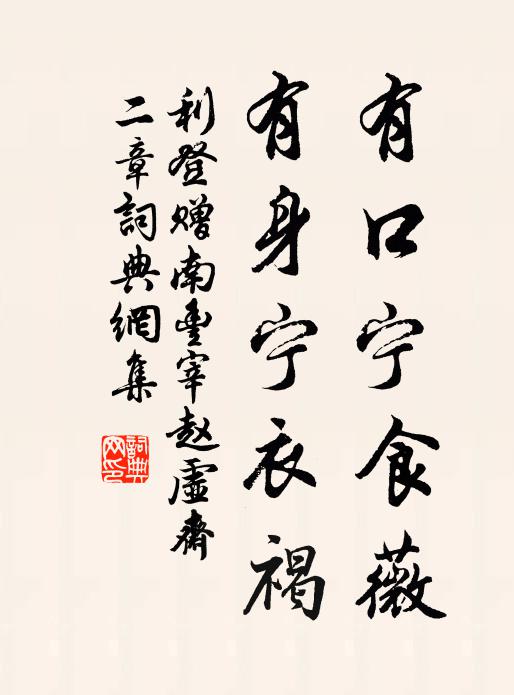 有口宁食薇
有身宁衣褐
利登赠南丰宰赵虚斋
二章詞典網集
詞典网印